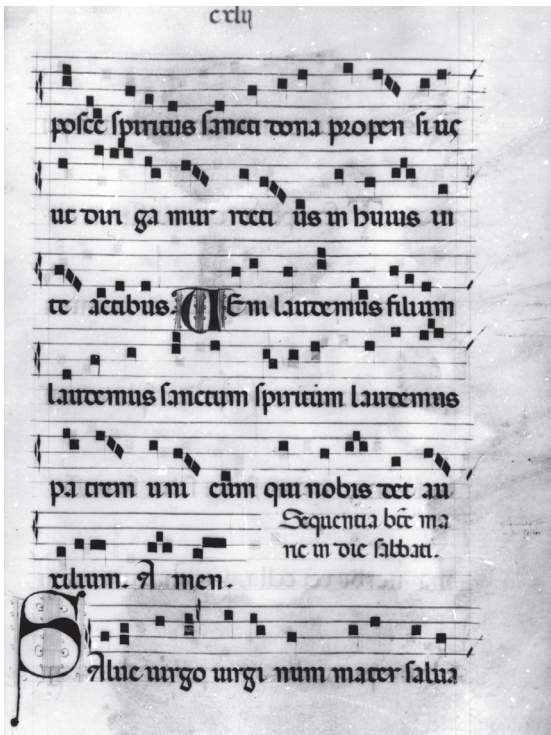 cxlij
posce spiritus sancti dona propen si us
ut diri ga mur recti us in huius ui
te actibus. A Em laudemus filium
laudemus sanctum spiritum laudemus
pa trem uni cum qui nobis det au
Sequentia bte ma
rie in die sabbati.
xilium. A men.
Salue uirgo uirgi num mater salua